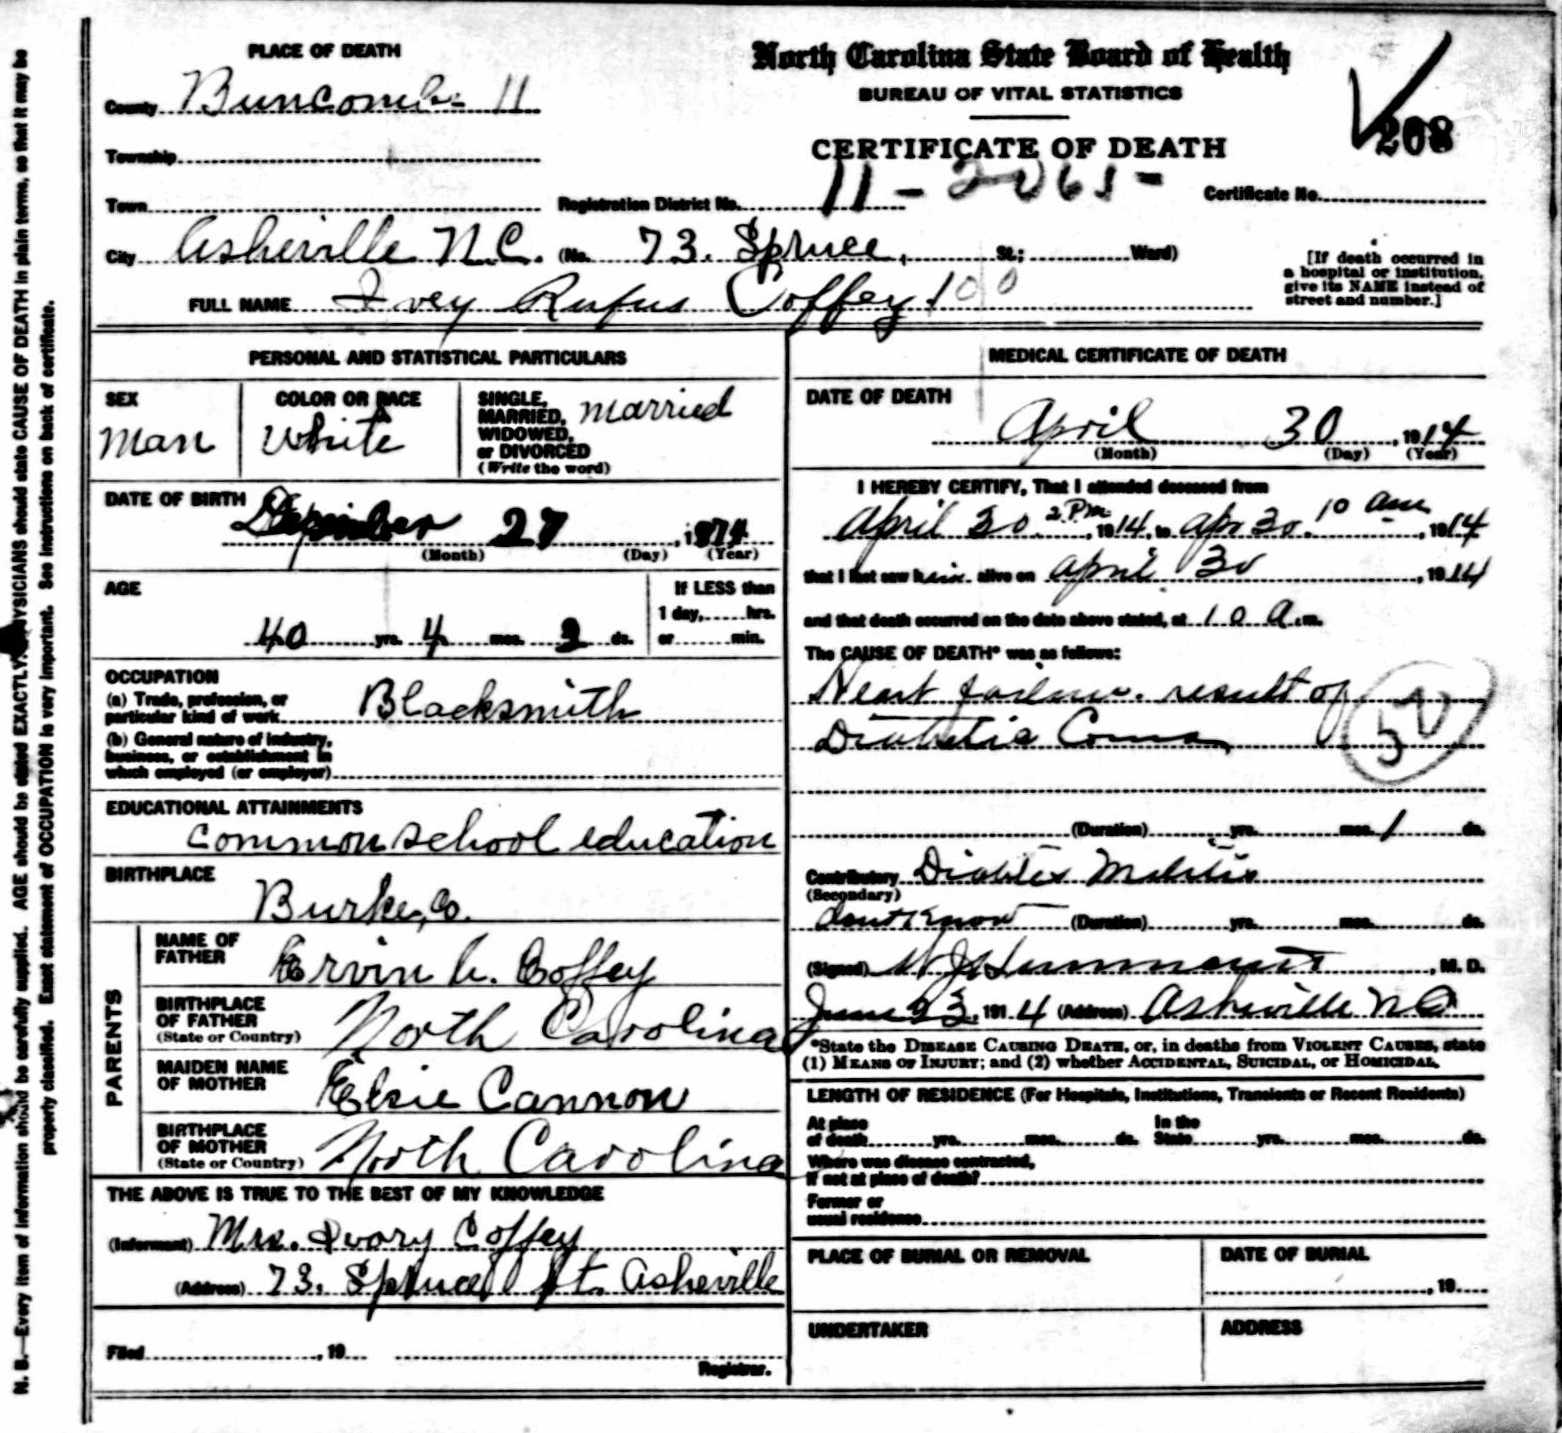 PLACE OF DEATH
County Buncombe 11
Township
Town
City Asheville N.C. (No. 73. Spruce, St.; Ward)
FULL NAME Ivey Rufus Coffey 100
North Carolina State Board of Health
BUREAU OF VITAL STATISTICS
CERTIFICATE OF DEATH
208
Registration District No. 11-2065- Certificate No.
[If death occurred in
a hospital or institution,
give its NAME instead of
street and number.]
PERSONAL AND STATISTICAL PARTICULARS
SEX
Man
COLOR OR RACE
White
SINGLE,
MARRIED,
WIDOWED,
or DIVORCED
(Write the word)
married
DATE OF BIRTH
27, 1874
(Month) (Day) (Year)
AGE
40 yrs. 4 mos. ds.
If LESS than
1 day, hrs.
or min.
OCCUPATION
(a) Trade, profession, or
particular kind of work Blacksmith
(b) General nature of industry,
business, or establishment in
which employed (or employer)
EDUCATIONAL ATTAINMENTS
common school education
BIRTHPLACE
Burke, Co.
PARENTS
NAME OF
FATHER
Ervin Coffey
BIRTHPLACE
OF FATHER
(State or Country)
North Carolina
MAIDEN NAME
OF MOTHER
Elsie Cannon
BIRTHPLACE
OF MOTHER
(State or Country)
North Carolina
THE ABOVE IS TRUE TO THE BEST OF MY KNOWLEDGE
(Informant) Mrs. Ivory Coffey
(Address) 73. Spruce St. Asheville
Filed , 19
Registrar.
MEDICAL CERTIFICATE OF DEATH
DATE OF DEATH
April 30, 1914
(Month) (Day) (Year)
I HEREBY CERTIFY, That I attended deceased from
April 30 2 P.m., 1914, to apr 30. 10 am, 1914
that I last saw him alive on april 30, 1914
and that death occurred on the date above stated, at 10 A. m.
The CAUSE OF DEATH* was as follows:
Heart failure. result of
Diabetic Coma
50
(Duration) yrs. mos. 1 ds.
Contributory Diabetes Melitis
(Secondary)
dont know (Duration) yrs. mos. ds.
(Signed) , M. D.
June 23, 1914 (Address) Asheville NC
*State the DISEASE CAUSING DEATH, or, in deaths from VIOLENT CAUSES, state
(1) MEANS OF INJURY; and (2) whether ACCIDENTAL, SUICIDAL, or HOMICIDAL.
LENGTH OF RESIDENCE (For Hospitals, Institutions, Transients or Recent Residents)
At place
of death yrs. mos. ds.
In the
State yrs. mos. ds.
Where was disease contracted,
if not at place of death?
Former or
usual residence
PLACE OF BURIAL OR REMOVAL
DATE OF BURIAL
, 19
UNDERTAKER
ADDRESS
N. B.—Every item of information should be carefully supplied. AGE should be stated EXACTLY. PHYSICIANS should state CAUSE OF DEATH in plain terms, so that it may be
properly classified. Exact statement of OCCUPATION is very important. See instructions on back of certificate.